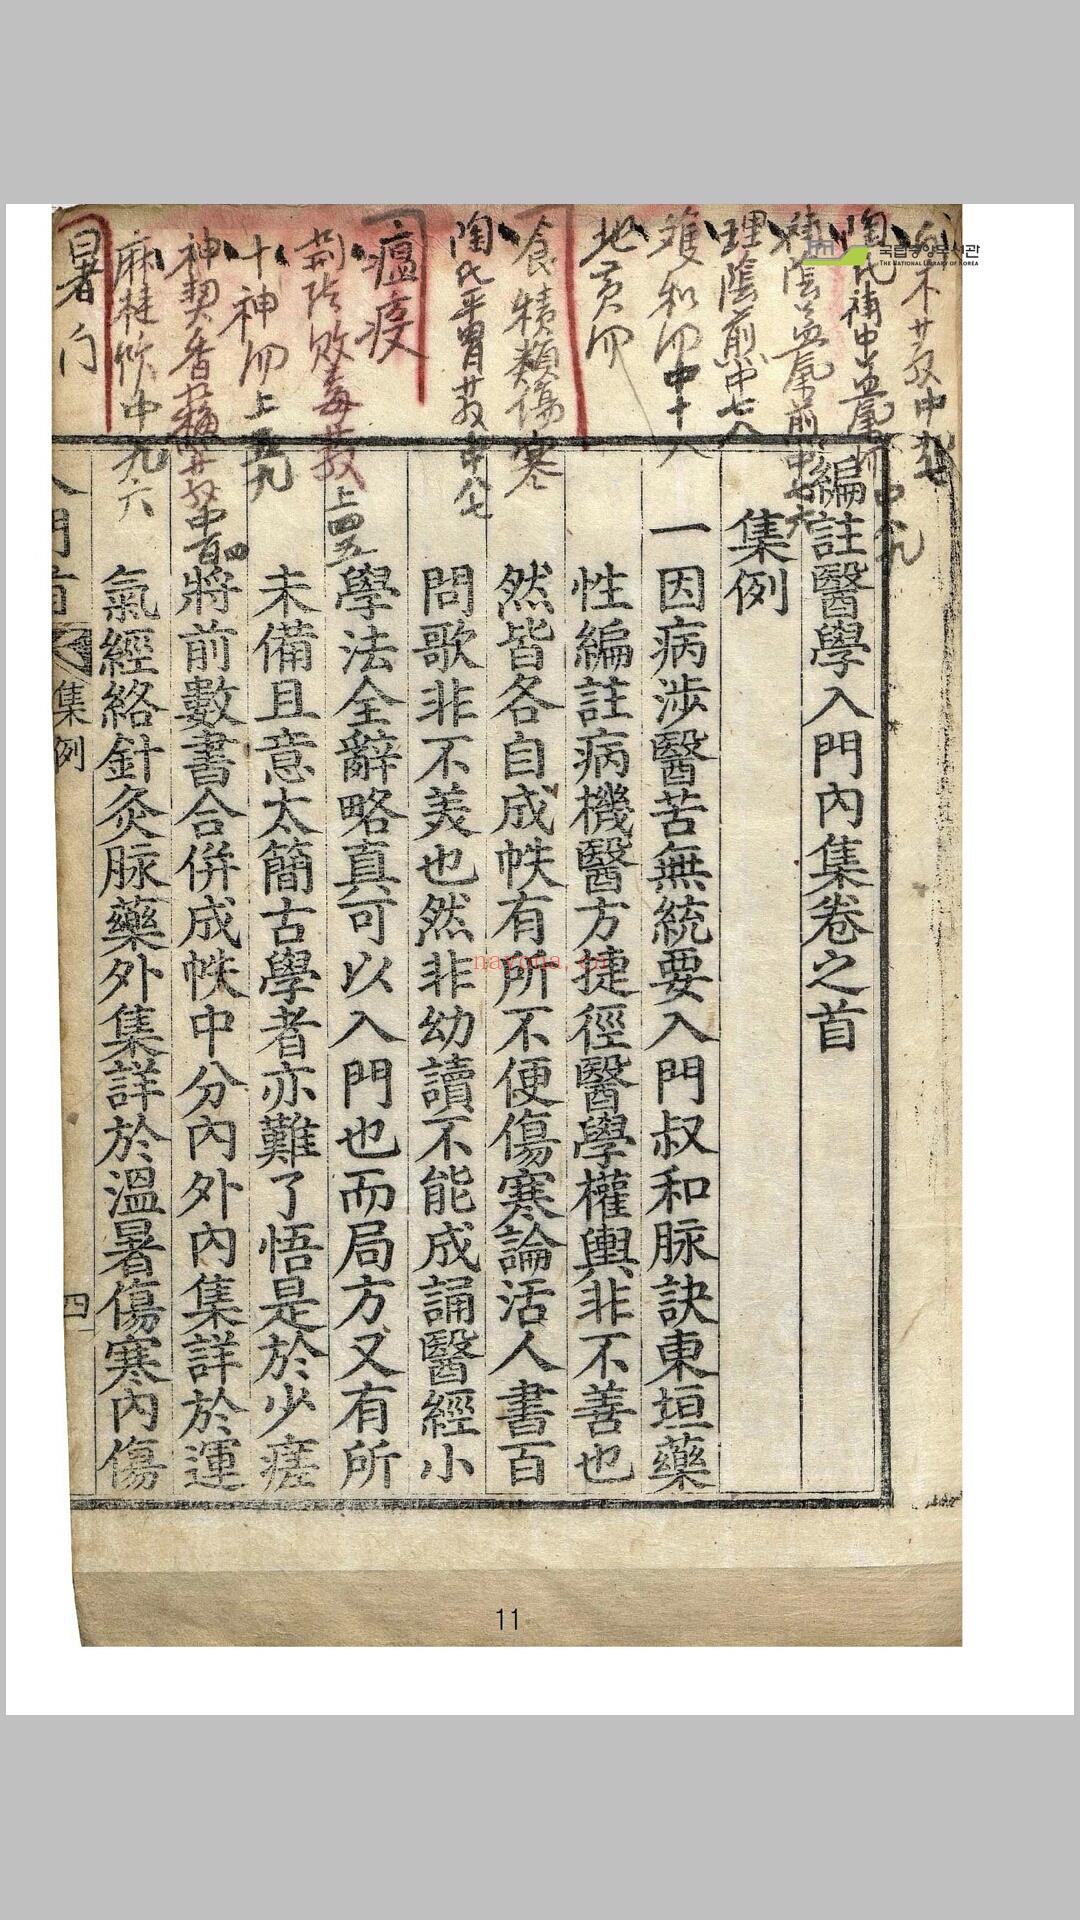 陶氏補中益氣
補陰益氣煎中七六
理陰煎中七八
雙和
中十八
地黃
食積類傷寒
陶氏平胃散
瘟疫
荊防敗毒散上四五
十神
上
神
香
散
中百四
麻桂飮中九六
暑門
국립중앙도서관
THE NATIONAL LIBRARY OF KOREA
編註醫學入門內集卷之首
集例
一因病涉醫苦無統要入門叔和脉訣東垣藥
性編註病機醫方捷徑醫學權輿非不善也
然皆各自成帙有所不便傷寒論活人書百
問歌非不美也然非幼讀不能成誦醫經小
學法全辭略真可以入門也而局方又有所
未備且意太簡古學者亦難了悟是於少瘥
將前數書合併成帙中分內外內集詳於運
氣經絡針灸脉藥外集詳於溫暑傷寒內傷
入門首
集例
四
nayona.cn
11